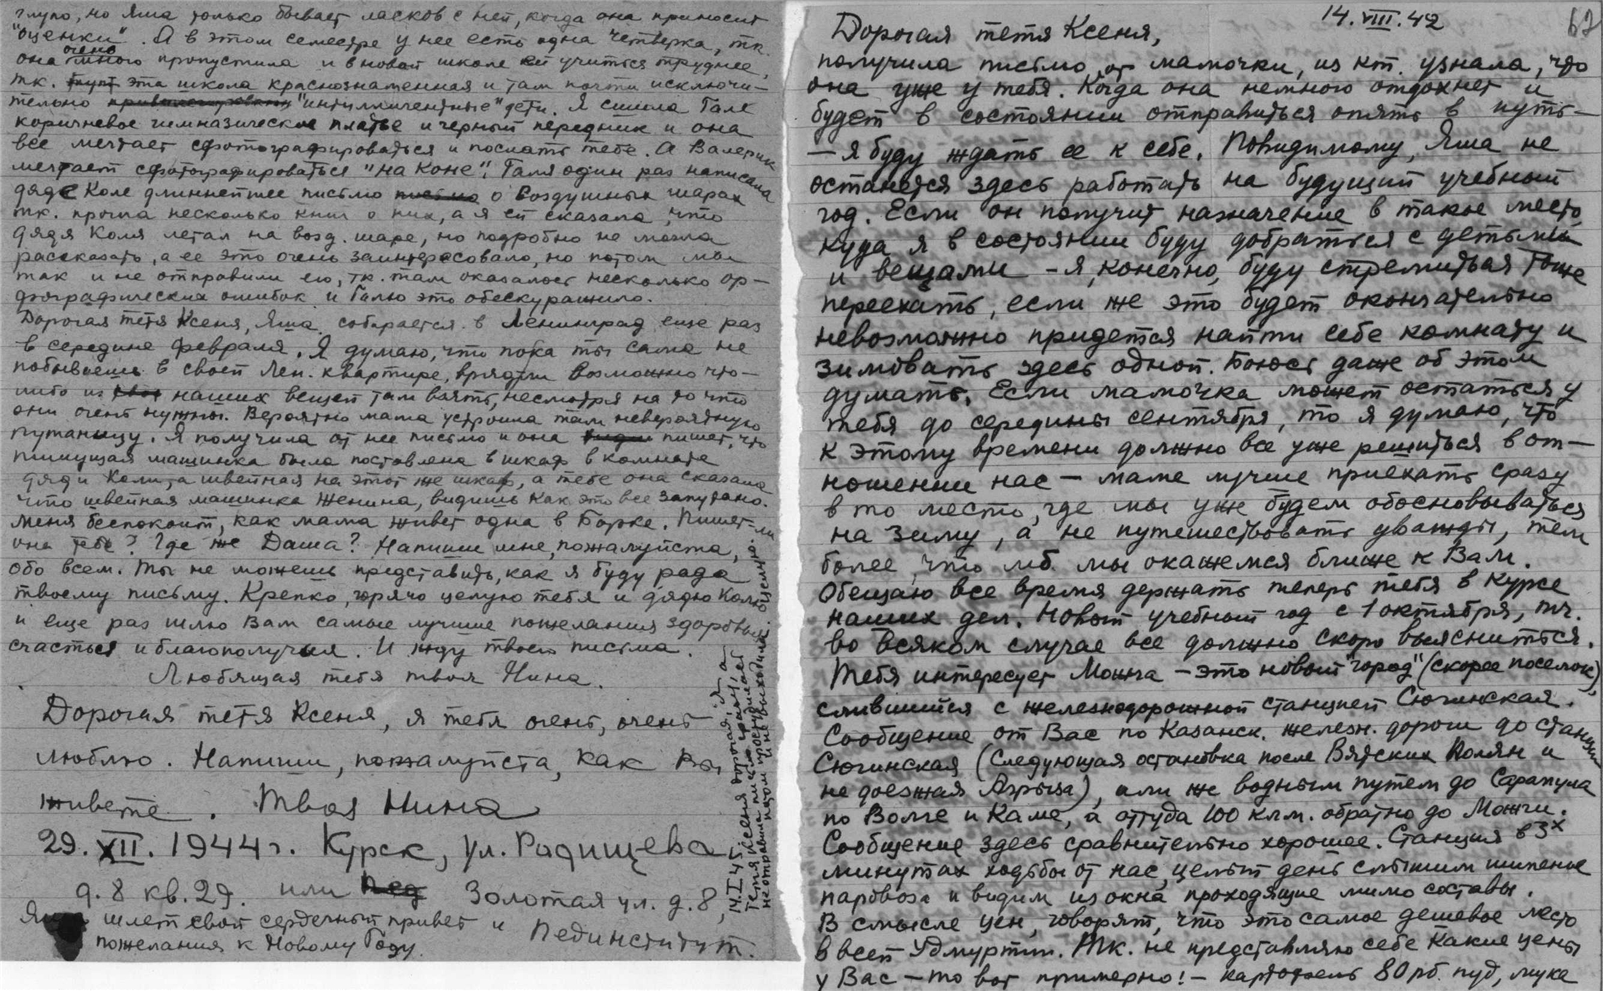 глупо, но Яша только бывает ласков с ней, когда она приносит
"оценки". А в этом семестре у нее есть одна четверка, тк
она очень много пропустила и в новой школе ей учиться труднее,
тк. эта школа краснознаменная и там почти исключи-
тельно "интиллигентные" дети. Я сшила Гале
коричневое гимназическое платье и черный передник и она
все мечтает сфотографироваться и послать тебе. А Валерик
мечтает сфотографироваться "на коне". Галя один раз написала
дяде Коле длиннейшее письмо о воздушных шарах
тк. прочла несколько книг о них, а я ей сказала, что
дядя Коля летал на возд. шаре, но подробно не могла
рассказать, а ее это очень заинтересовало, но потом мы
так и не отправили его, тк. там оказалось несколько ор-
фографических ошибок и Галю это обескуражило.
Дорогая тетя Ксеня, Яша собирается в Ленинград еще раз
в середине февраля. Я думаю, что пока ты сама не
побываешь в своей Лен. квартире, врядли возможно что-
либо из наших вещей там взять, несмотря на то что
они очень нужны. Вероятно мама устроила там невероятную
путаницу. Я получила от нее письмо и она пишет, что
пишущая машинка была поставлена в шкаф в комнате
дяди Коли, а швейная на этот же шкаф, а тебе она сказала
что швейная машинка Женина, видишь как это все запутано.
меня беспокоит, как мама живет одна в Борке. Пишет ли
она тебе? Где же Даша? Напиши мне, пожалуйста,
обо всем. Ты не можешь представить, как я буду рада
твоему письму. Крепко, горячо целую тебя и дядю Колю
и еще раз шлю Вам самые лучшие пожелания здоровья
счастья и благополучия. И жду твоего письма.
Любящая тебя твоя Нина.
Дорогая тетя Ксеня, я тебя очень, очень
люблю. Напиши, пожалуйста, как вы
живете. Твоя Нина
29.XII.1944 г. Курск, ул. Радищева
д. 8 кв. 29. или Золотая ул. д. 8,
Яша шлет свой сердечный привет и Пединститут.
пожелания к Новому Году.
14.I.45.
Тетя Ксеня дорогая, я
14.VIII.42
62
Дорогая тетя Ксеня,
получила письмо от мамочки, из кт. узнала, что
она уже у тебя. Когда она немного отдохнет и
будет в состоянии отправиться опять в путь-
- я буду ждать ее к себе. Повидимому, Яша не
останется здесь работать на будущий учебный
год. Если он получит назначение в такое место,
куда я в состоянии буду добраться с детьми
и вещами - я, конечно, буду стремиться тоже
переехать, если же это будет окончательно
невозможно придется найти себе комнату и
зимовать здесь одной. Боюсь даже об этом
думать. Если мамочка может остаться у
тебя до середины сентября, то я думаю, что
к этому времени должно все уже решиться в от-
ношении нас - маме лучше приехать сразу
в то место, где мы уже будем обосновываться
на зиму, а не путешествовать дважды, тем
более, что мб. мы окажемся ближе к Вам.
Обещаю все время держать теперь тебя в курсе
наших дел. Новый учебный год с 1 октября, тч.
во всяком случае все должно скоро выясниться.
Тебя интересует Можга - это новый "город" (скорее поселок),
слившийся с железнодорожной станцией Сюгинская.
Сообщение от Вас по Казанск. железн. дороги до станции
Сюгинская (следующая остановка после Вятских Полян и
не доезжая Агрыза), или же водным путем до Сарапула
по Волге и Каме, а оттуда 100 клм. обратно до Можги.
Сообщение здесь сравнительно хорошее. Станция в 3х
минутах ходьбы от нас, целый день слышим шипение
паровоза и видим из окна проходящие мимо составы.
В смысле цен, говорят, что это самое дешевое место
в всей Удмуртии. Тк. не представляю себе какие цены
у Вас - то вот примерно: - картофель 80 рб. пуд, мука